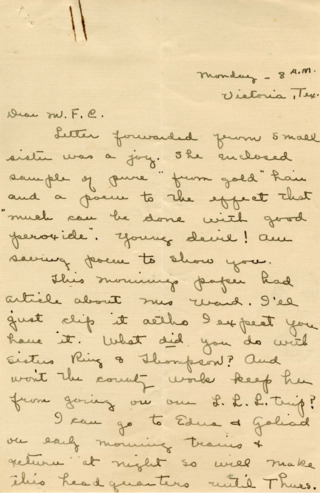 Monday - 8 A.M.
Victoria, Tex.
Dear M. F. C.
Letter forwarded from small
sister was a joy. She enclosed
sample of pure "from gold" hair
and a poem to the effect that
"much can be done with good
peroxide". Young devil! Am
saving poem to show you.
This mornings paper had
article about Mrs Ward. I'll
just clip it altho I expect you
have it. What did you do with
sisters King & Thompson? And
won't the county work keep her
from going on our L. L. L. trip?
I can go to Edna & Goliad
on early morning trains &
return at night so will make
this headquarters until Thurs.